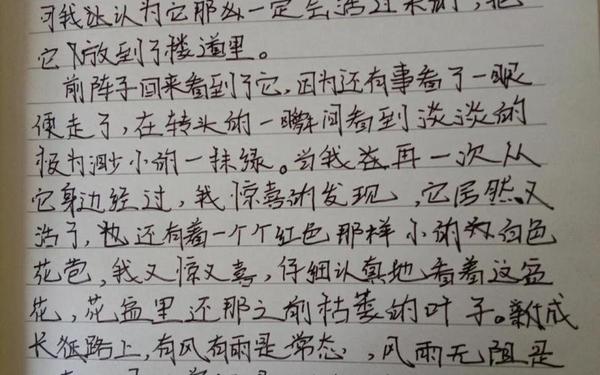 可我还认为它那么一定会活过来的，把
它放到了楼道里。
前阵子回来看到了它，因为还有事看了一眼
便走了，在转头的一瞬间看到淡淡的
极为渺小的一抹绿。当我在再一次从
它身边经过，我惊喜的发现，它居然又
活了，也还有着一个个红色那样小的白色
花苞，我又惊又喜，仔细认真地看着这盆
花，花盆里还那之前枯萎的叶子。新成
长征路上，有风有雨是常态，风雨无阻是